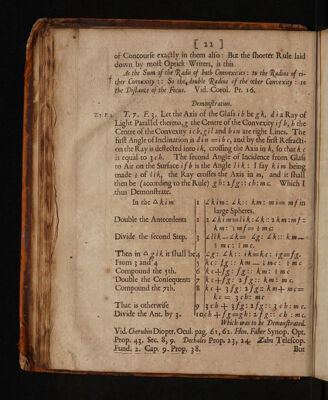 [ 22 ]
of Concourse exactly in them also: But the shorter Rule laid
down by most Optick Writers, is this.
As the Sum of the Radii of both Convexities : to the Radius of ei-
ther Convexity :: So the double Radius of the other Convexity : to
the Distance of the Focus. Vid. Corol. Pr. 16.
Demonstration.
T. 7. F. 3. Let the Axis of the Glass i b be g k, d i a Ray of
Light Parallel thereto, g the Centre of the Convexity i f b, h the
Centre of the Convexity i c b, g i l and h i n are right Lines. The
first Angle of Inclination is d i n = i h c, and by the first Refracti-
on the Ray is deflected into i k, crossing the Axis in k, so that k c
is equal to 3 c h. The second Angle of Incidence from Glass
to Air on the Surface i f b is the Angle l i k : I say k i m being
made ½ of l i k, the Ray crosses the Axis in m, and it shall
then be (according to the Rule) g h : 2 f g :: c h : m c. Which I
thus Demonstrate.
In the Δ k i m
1
∠ k i m : ∠ k :: k m : m i = m f in
large Spheres.
Double the Antecedents
2
2 ∠ k i m = l i k : ∠ k :: 2 k m : m f :
k m : ½ m f = ½ m c
Divide the second Step.
3
∠ l i k — ∠ k = ∠ g : ∠ k :: k m —
½ m c : ½ m c.
Then in Δ g i k it shall be
4
∠ g : ∠ k :: i k = k c : i g = f g.
From 3 and 4
5
k c : f g :: k m — ½ m c : ½ m c
Compound the 5th.
6
k c + f g : f g :: k m : ½ m c
Double the Consequents
7
k c + f g : 2 f g :: k m : m c.
Compound the 7th.
8
k c + 3 f g : 2 f g :: k m + m c =
k c = 3 c h : m c
That is otherwise
9
3 c h + 3 f g : 2 f g :: 3 c h : m c.
Divide the Ant. by 3.
10
c h + f g = g h : 2 f g :: c h : m c.
Which was to be Demonstrated.
Vid. Cherubin Dioptr. Ocul. pag. 61, 62. Hon. Faber Synop. Opt.
Prop. 43. Sec. 8, 9. Dechales Prop. 23, 24. Zahn Telescop.
Fund. 2. Cap. 9. Prop. 38.
But